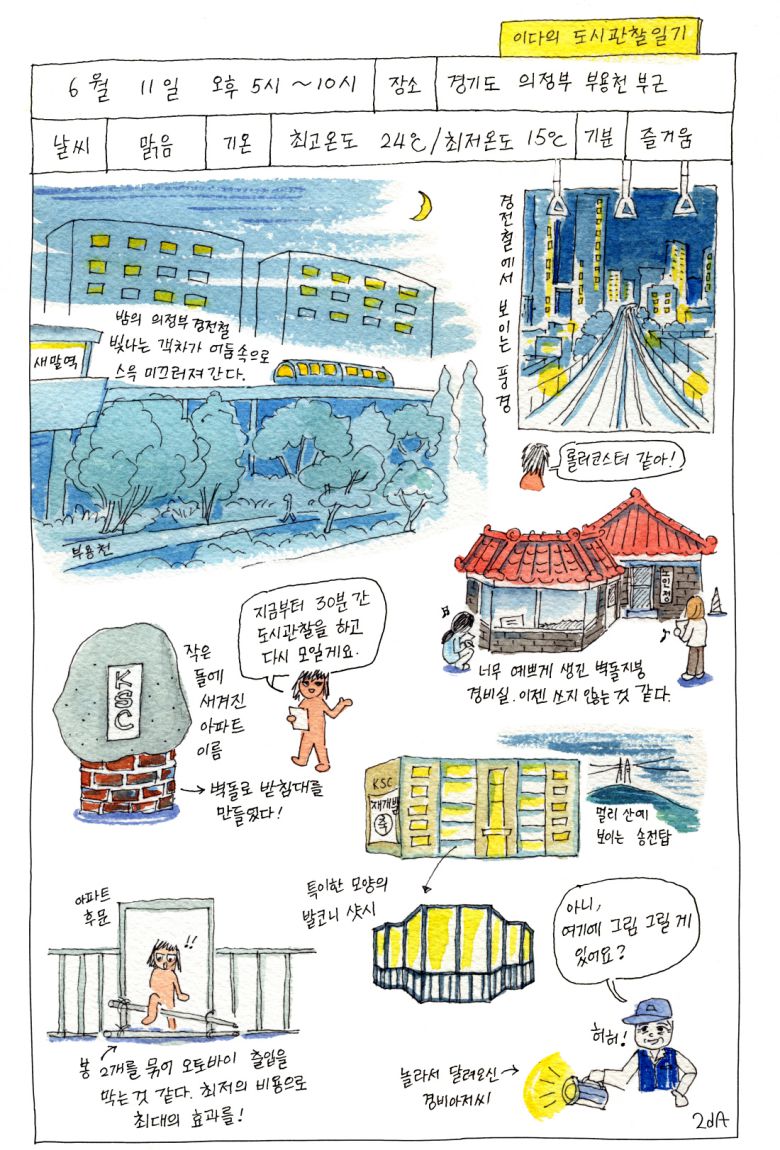 이다의 도시관찰일기
6월 11일 오후 5시 ~ 10시 장소 경기도 의정부 부용천 부근
날씨 맑음 기온 최고온도 24℃/최저온도 15℃ 기분 즐거움
밤의 의정부경전철
빛나는 객차가 어둠속으로
스윽 미끄러져 간다.
새말역
부용천
경전철에서 보이는 풍경
롤러코스터 같아!
노인정
너무 예쁘게 생긴 벽돌지붕
경비실. 이젠 쓰지 않는 것 같다.
지금부터 30분간
도시관찰을 하고
다시 모일게요.
KSC
작은
돌에
새겨진
아파트
이름
→ 벽돌로 받침대를
만들었다!
KSC
재개발
축
멀리 산에
보이는 송전탑
특이한 모양의
발코니 샷시
아파트
후문
!!
봉 2개를 묶어 오토바이 출입을
막는 것 같다. 최저의 비용으로
최대의 효과를!
아니,
여기에 그림 그릴 게
있어요?
허허!
놀라서 달려오신 →
경비아저씨
2dA